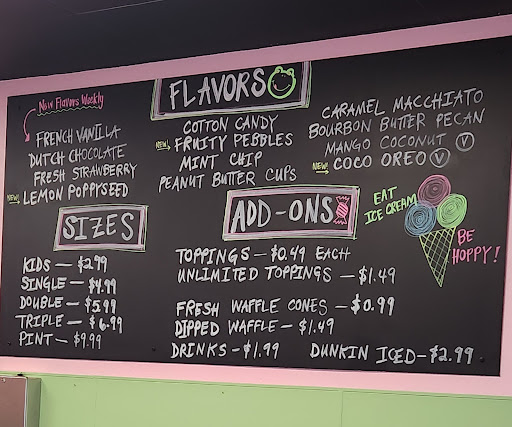 New Flavors Weekly
FLAVORS
FRENCH VANILLA
DUTCH CHOCOLATE
FRESH STRAWBERRY
NEW! LEMON POPPYSEED
COTTON CANDY
NEW! FRUITY PEBBLES
MINT CHIP
PEANUT BUTTER CUPS
CARAMEL MACCHIATO
BOURBON BUTTER PECAN
MANGO COCONUT V
NEW! COCO OREO V
SIZES
KIDS — $2.99
SINGLE — $4.99
DOUBLE — $5.99
TRIPLE — $6.99
PINT — $9.99
ADD-ONS
TOPPINGS — $0.49 EACH
UNLIMITED TOPPINGS — $1.49
FRESH WAFFLE CONES — $0.99
DIPPED WAFFLE — $1.49
DRINKS — $1.99
DUNKIN ICED — $2.99
EAT
ICE CREAM
BE
HOPPY!